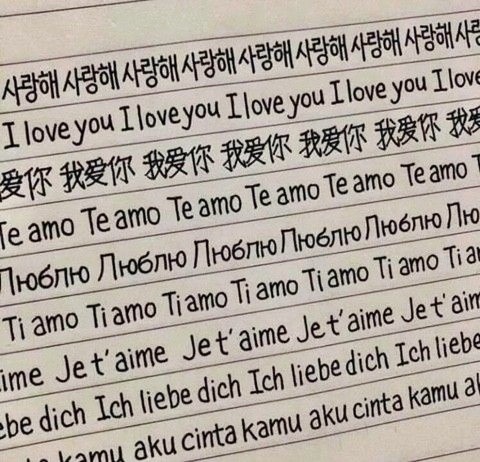 사랑해 사랑해 사랑해 사랑해 사랑해 사랑해 사랑해 사랑해
I love you I love you I love you I love you I love
爱你 我爱你 我爱你 我爱你 我爱你 我爱你 我爱
Te amo Te amo Te amo Te amo Te amo Te amo T
Люблю Люблю Люблю Люблю Люблю Лю
Ti amo Ti amo Ti amo Ti amo Ti amo Ti am
aime Je t'aime Je t'aime Je t'aime Je t'aim
ebe dich Ich liebe dich Ich liebe dich Ich liebe
kamu aku cinta kamu aku cinta kamu ak